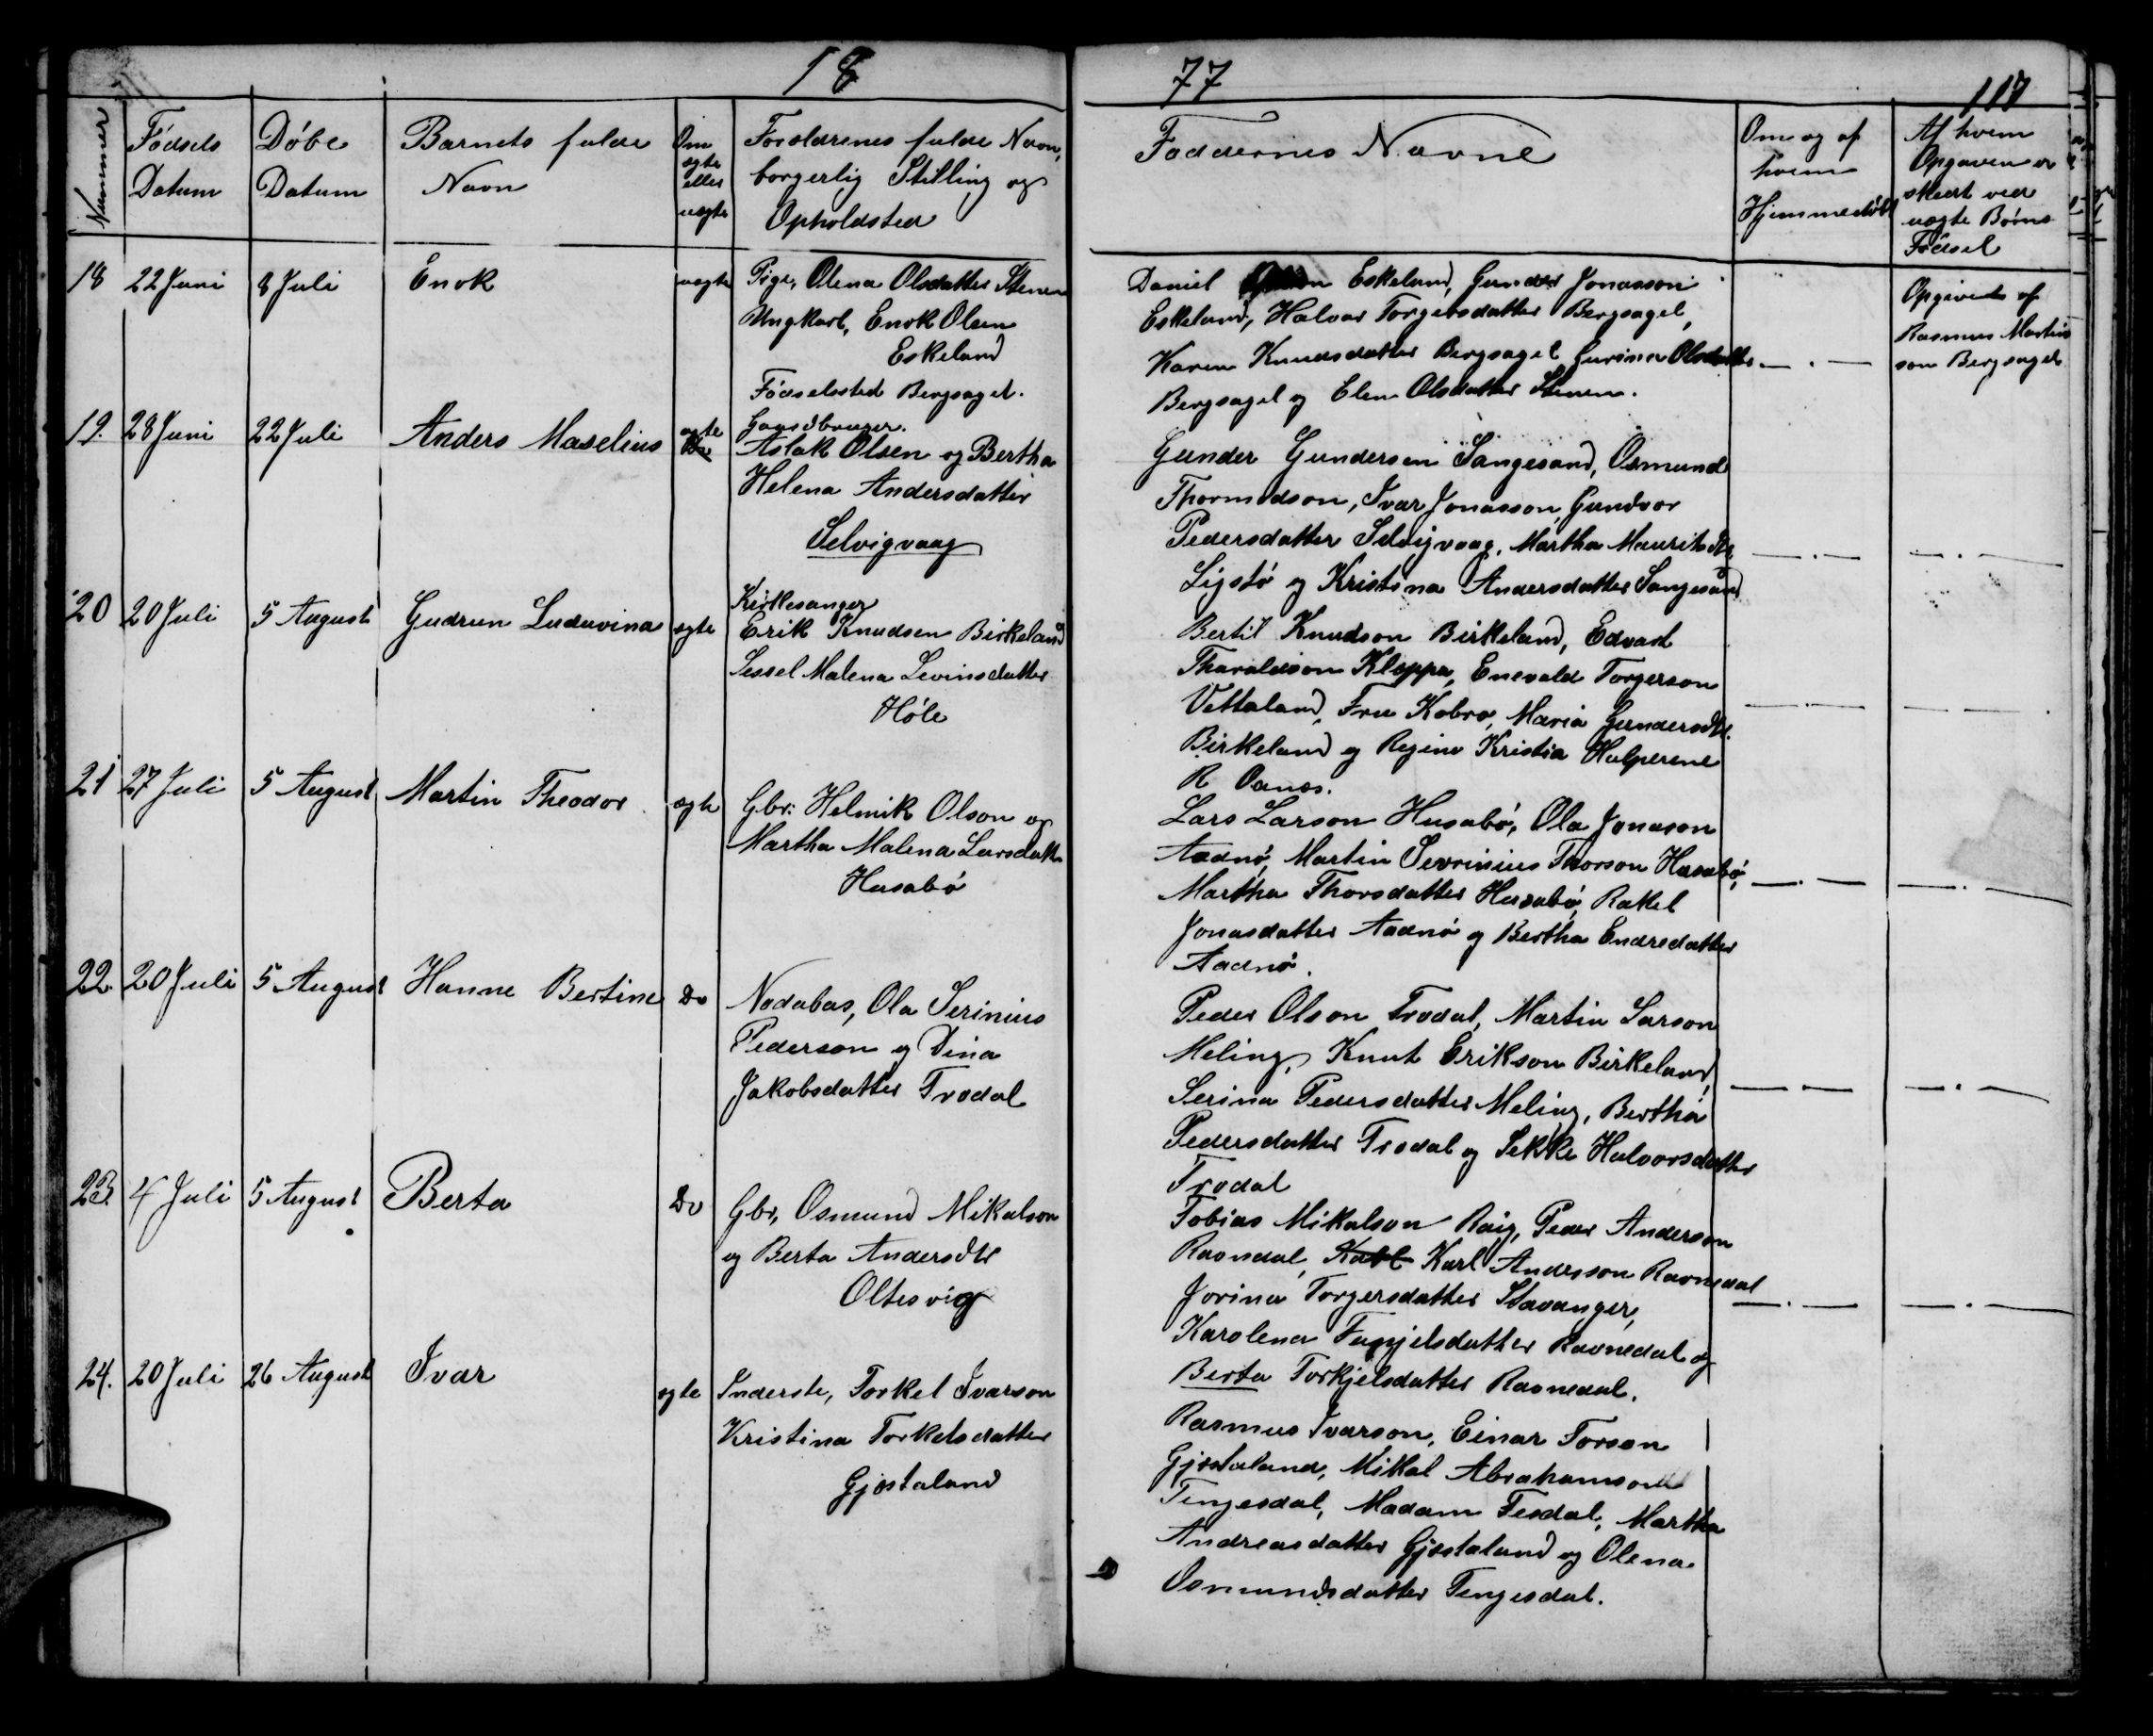 18
77
117
Nummer
Födsels
Datum
Döbe
Datum
Barnets fulde
Navn
Om
ægte
eller
uægte
Forældrenes fulde Navn,
borgerlig Stilling og
Opholdsted
Faddernes Navne
Om og af
hvem
Hjemmedöbt
Af hvem
Opgaven er
skeet ved
uægte Börns
Födsel
18
22 Juni
8 Juli
Enok
uægte
Pige, Olena Olsdatter Stenen
Ungkarl, Enok Olsen
Eskeland
Födselssted Bergsagel.
Daniel Eskeland, Gunder Jonasson
Eskeland, Halvar Torgersdatter Bergsagel,
Karen Knudsdatter Bergsagel Gurina Olsdatter
Bergsagel og Elen Olsdatter Stenen.
Opgivet af
Rasmus Martin
son Bergsagel
19.
28 Juni
22 Juli
Anders Maselius
ægte
Gaardbruger.
Aslak Olsen og Bertha
Helena Andersdatter
Selvigvaag
Gunder Gundersen Sangesand, Osmund
Thormodson, Ivar Jonasson, Gundvor
Pedersdatter Selvigvaag, Martha Mauritsdtr.
Ligstö og Kristina Andersdatter Sangesand
20
20 Juli
5 August
Gudrun Luduvina
ægte
Kirkesanger
Erik Knudsen Birkeland
Sessel Malena Levinsdatter
Höle
Bertil Knudson Birkeland, Edvard
Tharaldson Kleppa, Enevald Torgerson
Vettaland, Fru Kobro, Maria Gundersdtr.
Birkeland og Regine Kristia Halperene
R Oanes.
21
27 Juli
5 August
Martin Theodor
ægte
Gbr: Helmik Olson og
Martha Malena Larsdatter
Husabö
Lars Larson Husabö, Ola Jonason
Aadnö, Martin Sevrinius Thorson Husabö,
Martha Thorsdatter Husabö, Rakel
Jonasdatter Aadnö og Bertha Endredatter
Aadnö.
22
20 Juli
5 August
Hanne Bertine
Do
Nodabas, Ola Serinius
Pederson og Dina
Jakobsdatter Trodal
Peder Olson Trodal, Martin Larson
Meling, Knut Erikson Birkeland,
Serina Pedersdatter Meling, Bertha
Pedersdatter Trodal og Sekke Halvorsdatter
Trodal
23
4 Juli
5 August
Berta
Do
Gbr, Osmund Mikalson
og Berta Andersdtr
Oltesvig
Tobias Mikalson Raig, Peder Anderson
Ravndal, Karl Karl Andersson Ravnedal
Jorina Torgersdatter Stavanger,
Karolena Torgjelsdatter Ravnedal og
Berta Torkjelsdatter Ravnedal.
24.
20 Juli
26 August
Ivar
ægte
Inderste, Torkel Ivarson
Kristina Torkelsdatter
Gjøstaland
Rasmus Ivarson, Einar Torson
Gjøstaland, Mikal Abrahamson
Tengesdal, Madam Tesdal, Martha
Andreasdatter Gjøstaland og Olena
Osmundsdatter Tengesdal.